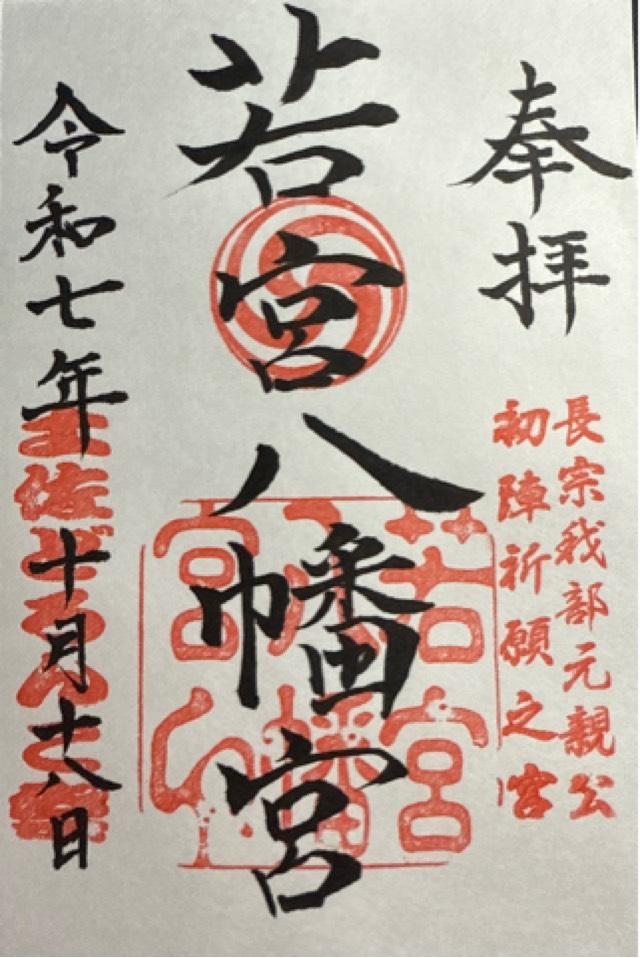 奉拝
長宗我部元親公
初陣祈願之宮
若宮八幡宮
若宮
八幡
宮
令和七年十月十八日
土佐どろんこ祭